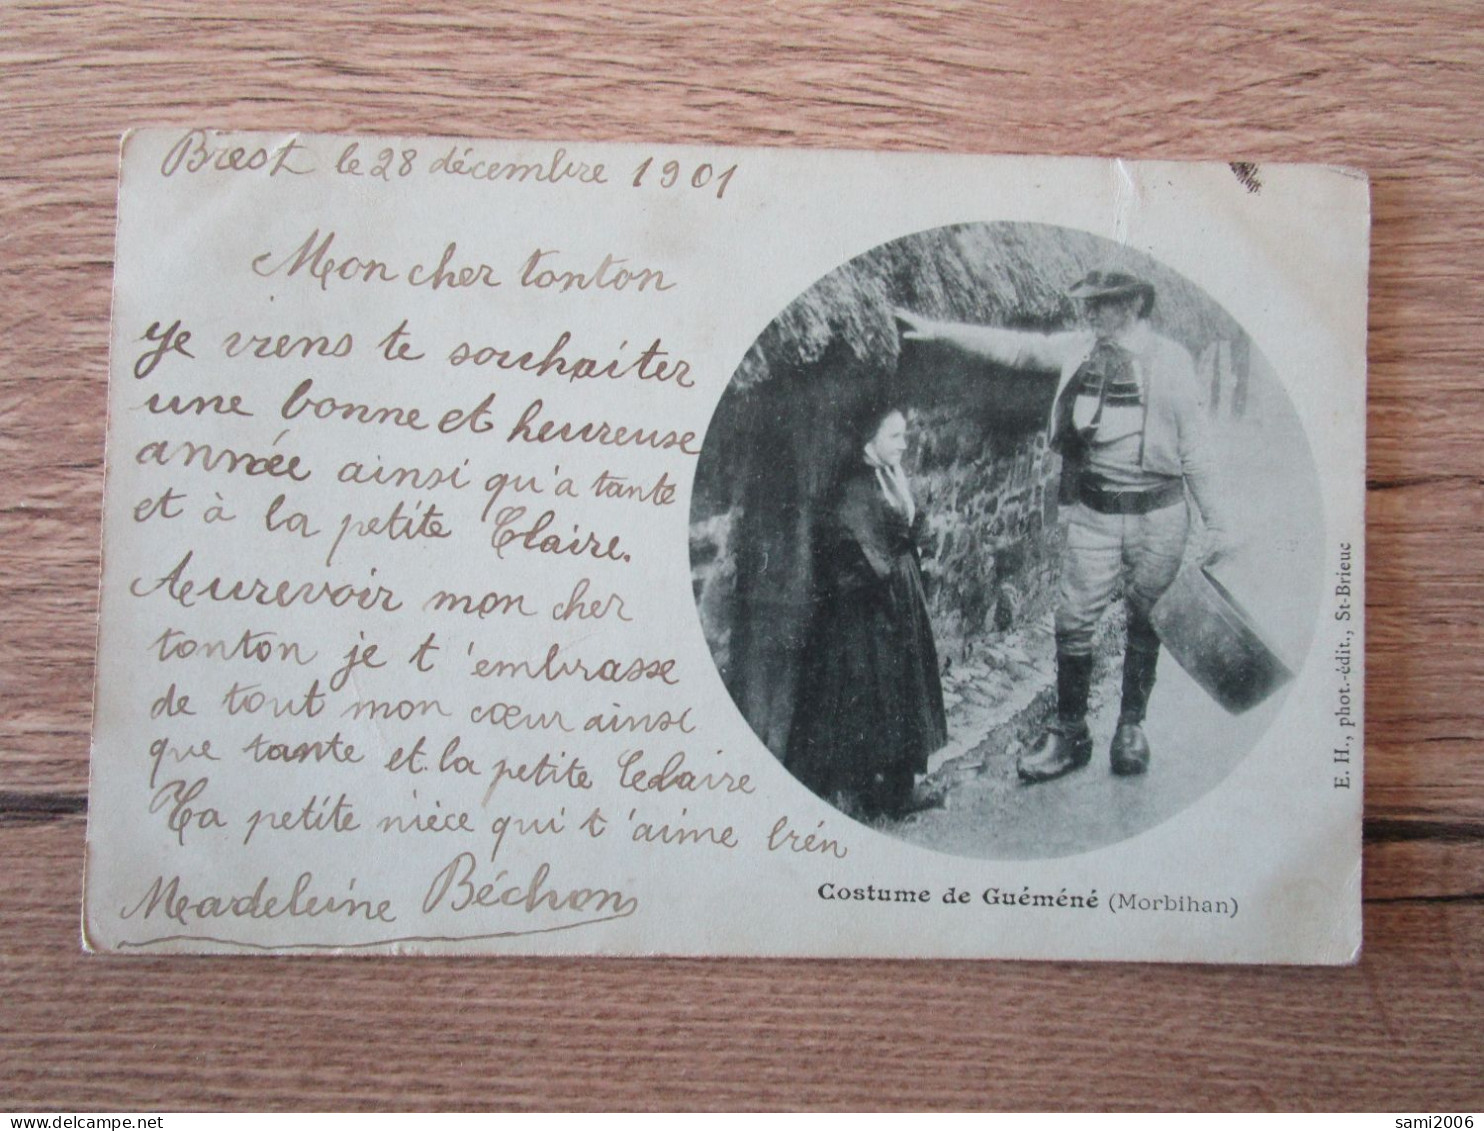 Brest le 28 décembre 1901
Mon cher tonton
Je viens te souhaiter
une bonne et heureuse
année ainsi qu'a tante
et à la petite Claire.
Aurevoir mon cher
tonton je t'embrasse
de tout mon cœur ainsi
que tante et la petite Claire
Ta petite nièce qui t'aime bién
Madeleine Béchon
Costume de Guéméné (Morbihan)
E. H., phot.-édit., St-Brieuc
delcampe.net
sami2006